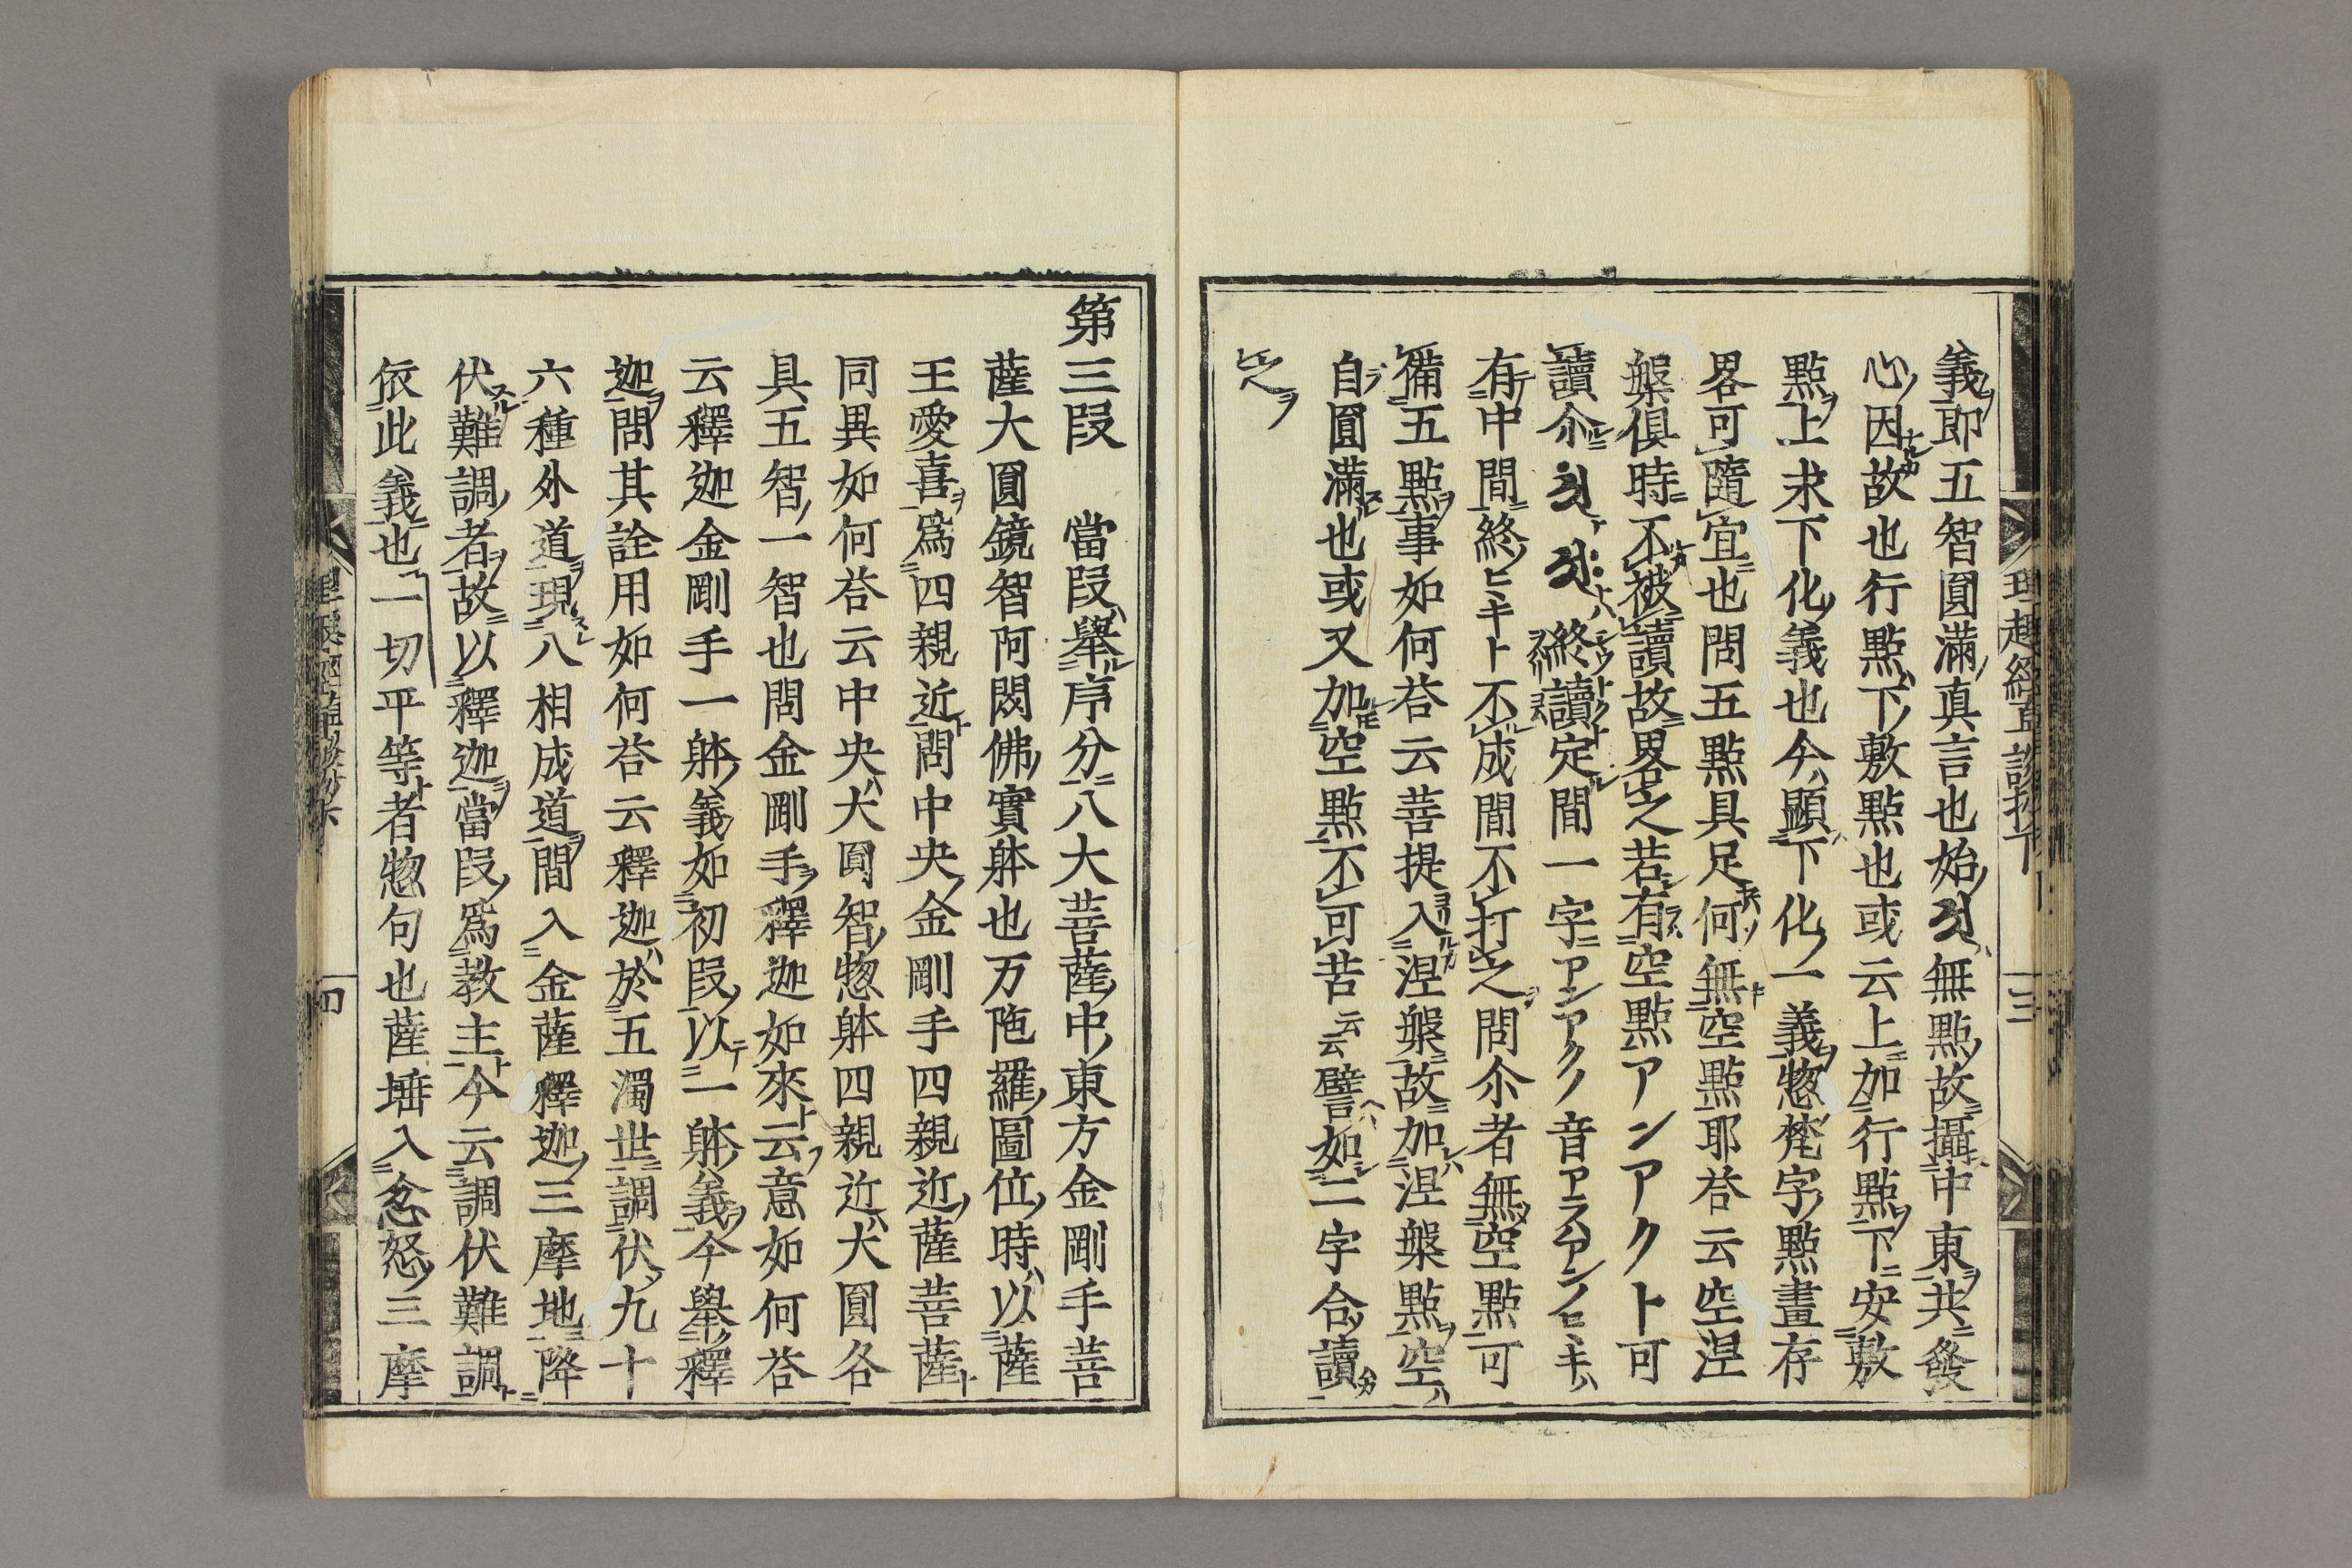 義即五智圓滿真言也始無點故攝中東共發
心因故也行點下敷點也或云上加行點下安敷
點上求下化義也今顯下化一義惣梵字點畫存
畧可隨宜也問五點具足何無空點耶荅云空涅
槃俱時不被讀故畧之若有空點アンアクト可
讀尒終讀定間一字アンアクノ音アラアンノヒヽキハ
有中間終ヒヽキト不成間不打之問尒者無空點可
備五點事如何荅云菩提入涅槃故加涅槃點空
自圓滿也或又加空點不可苦云云譬如二字合讀
之
理趣經直談抄下 三
第三段 當段舉序分八大菩薩中東方金剛手菩
薩大圓鏡智阿閦佛實躰也万陁羅圖位時以薩
王愛喜爲四親近問中央金剛手四親近薩菩薩
同異如何荅云中央大圓智惣躰四親近大圓各
具五智一智也問金剛手釋迦如來云意如何荅
云釋迦金剛手一躰義如初段以一躰義今舉釋
迦問其詮用如何荅云釋迦於五濁世調伏九十
六種外道現八相成道間入金薩釋迦三摩地降
伏難調者故以釋迦當段爲教主今云調伏難調
依此義也一切平等者惣句也薩埵入忿怒三摩
四